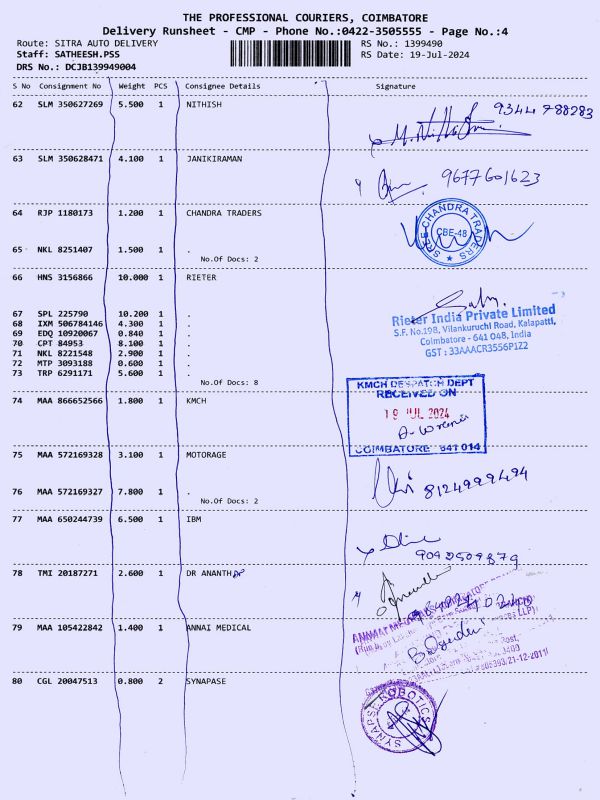 THE PROFESSIONAL COURIERS, COIMBATORE
Delivery Runsheet - CMP - Phone No.:0422-3505555 - Page No.:4
Route: SITRA AUTO DELIVERY RS No.: 1399490
Staff: SATHEESH.PSS RS Date: 19-Jul-2024
DRS No.: DCJB139949004
S No Consignment No Weight PCS Consignee Details Signature
62 SLM 350627269 5.500 1 NITHISH
9344788283
63 SLM 350628471 4.100 1 JANIKIRAMAN
9677601623
64 RJP 1180173 1.200 1 CHANDRA TRADERS
SREE CHANDRA TRADERS
CBE-48
65 NKL 8251407 1.500 1 .
No.Of Docs: 2
66 HNS 3156866 10.000 1 RIETER
Rieter India Private Limited
S.F. No.19B, Vilankuruchi Road, Kalapatti,
Coimbatore - 641 048, India
GST : 33AAACR3556P1Z2
67 SPL 225790 10.200 1 .
68 IXM 506784146 4.300 1 .
69 EDQ 10920067 0.840 1 .
70 CPT 84953 8.100 1 .
71 NKL 8221548 2.900 1 .
72 MTP 3093188 0.600 1 .
73 TRP 6291171 5.600 1 .
No.Of Docs: 8
74 MAA 866652566 1.800 1 KMCH
KMCH DESPATCH DEPT
RECEIVED ON
19 JUL 2024
COIMBATORE 641 014
75 MAA 572169328 3.100 1 MOTORAGE
8124999494
76 MAA 572169327 7.800 1 .
No.Of Docs: 2
77 MAA 650244739 6.500 1 IBM
9092509879
78 TMI 20187271 2.600 1 DR ANANTH
79 MAA 105422842 1.400 1 ANNAI MEDICAL
80 CGL 20047513 0.800 2 SYNAPASE
SYNAPSE ROBOTICS